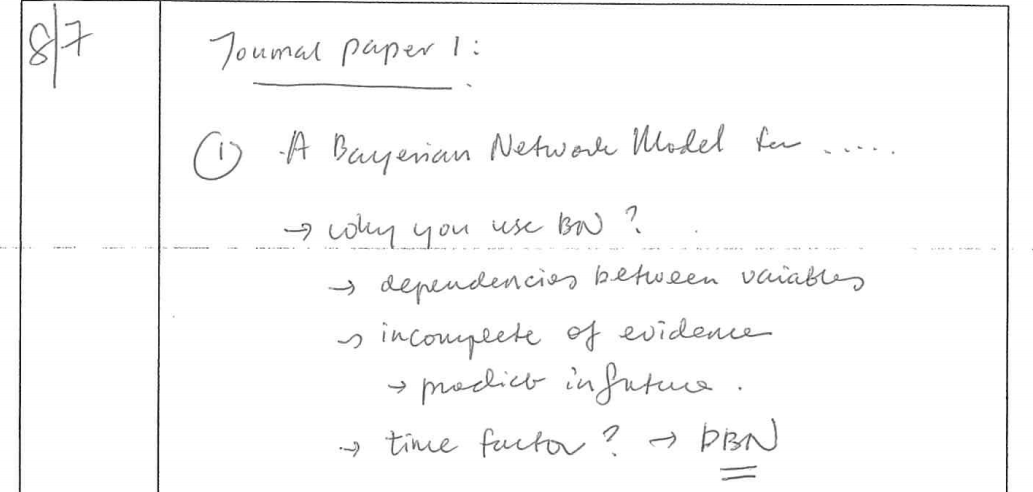 8/7
Journal paper 1:
① A Bayesian Network Model for .....
→ why you use BN?
→ dependencies between variables
→ incomplete of evidence
→ predict in future.
→ time factor? → DBN